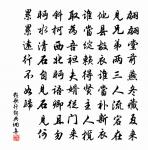 翩翩堂前燕冬藏夏來
見兄弟兩三人流宕在
他縣故衣誰當補新衣
誰當綻賴得賢主人覽
取為吾綻夫婿從門來
斜柯西北眄語卿且勿
眄水清石自見石見何
累累遠行不如歸